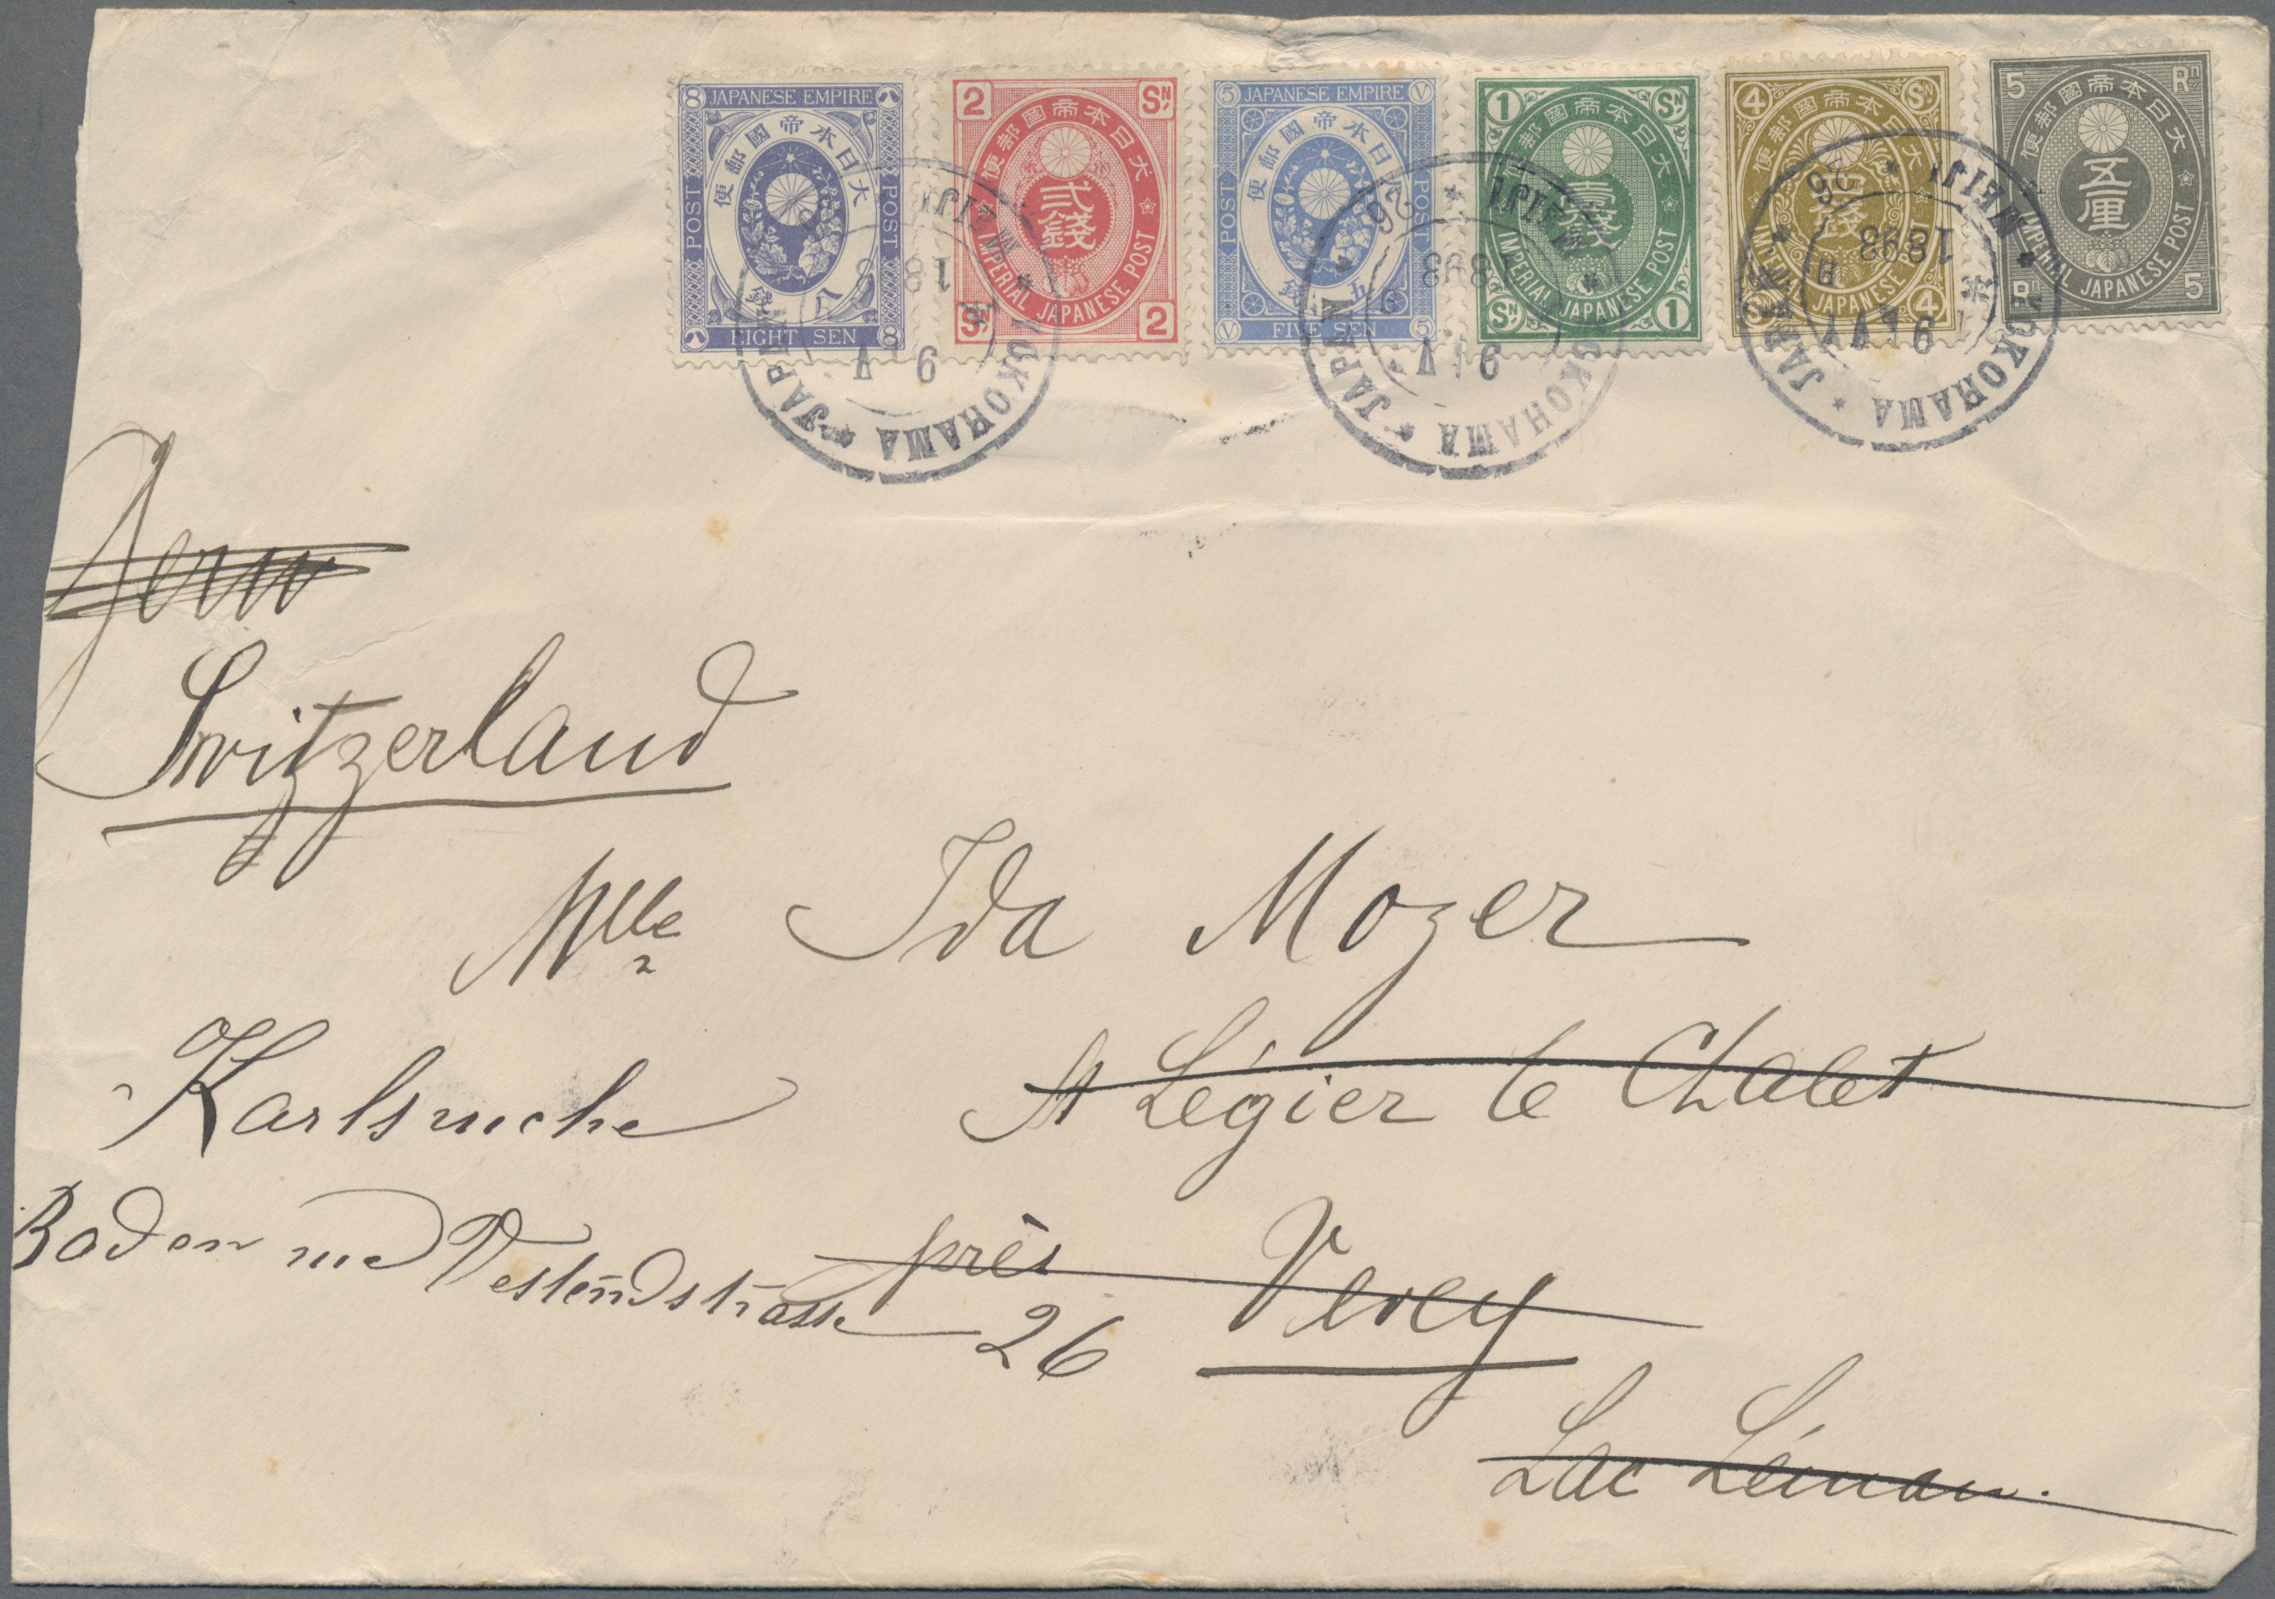 8 JAPANESE EMPIRE 八
大日本帝國郵便
POST POST
八錢
八 EIGHT SEN 8
2 SN
大日本帝國郵便
貳錢
IMPERIAL JAPANESE POST
SN 2
5 JAPANESE EMPIRE V
大日本帝國郵便
POST POST
五錢
V FIVE SEN 5
1 SN
大日本帝國郵便
壹錢
IMPERIAL JAPANESE POST
SN 1
4 SN
大日本帝國郵便
四錢
IMPERIAL JAPANESE POST
SN 4
5 Rn
大日本帝國郵便
五厘
IMPERIAL JAPANESE POST
Rn 5
YOKOHAMA JAPAN MEIJI 26
1893
YOKOHAMA JAPAN MEIJI 26
1893
YOKOHAMA JAPAN MEIJI 26
1893
Switzerland
Mlle Ida Mozer
Karlsruche St Légier le Chalet
Baden Westendstrasse 26
près Vevey
Lac Léman.